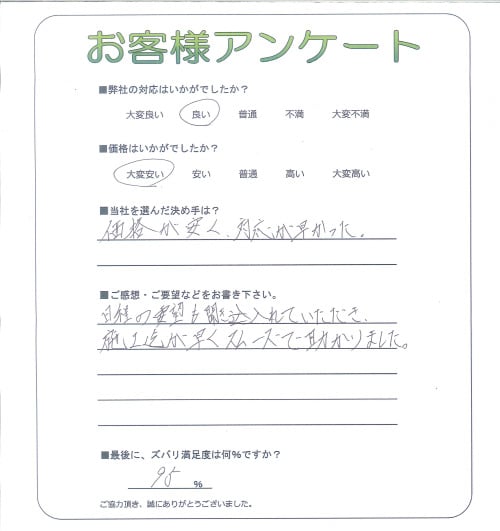 お客様アンケート
■弊社の対応はいかがでしたか？
大変良い 良い 普通 不満 大変不満
■価格はいかがでしたか？
大変安い 安い 普通 高い 大変高い
■当社を選んだ決め手は？
価格が安く、対応が早かった。
■ご感想・ご要望などをお書き下さい。
日程の要望も聞き入れていただき、
施工迄が早くスムーズで助かりました。
■最後に、ズバリ満足度は何％ですか？
95 %
ご協力頂き、誠にありがとうございました。